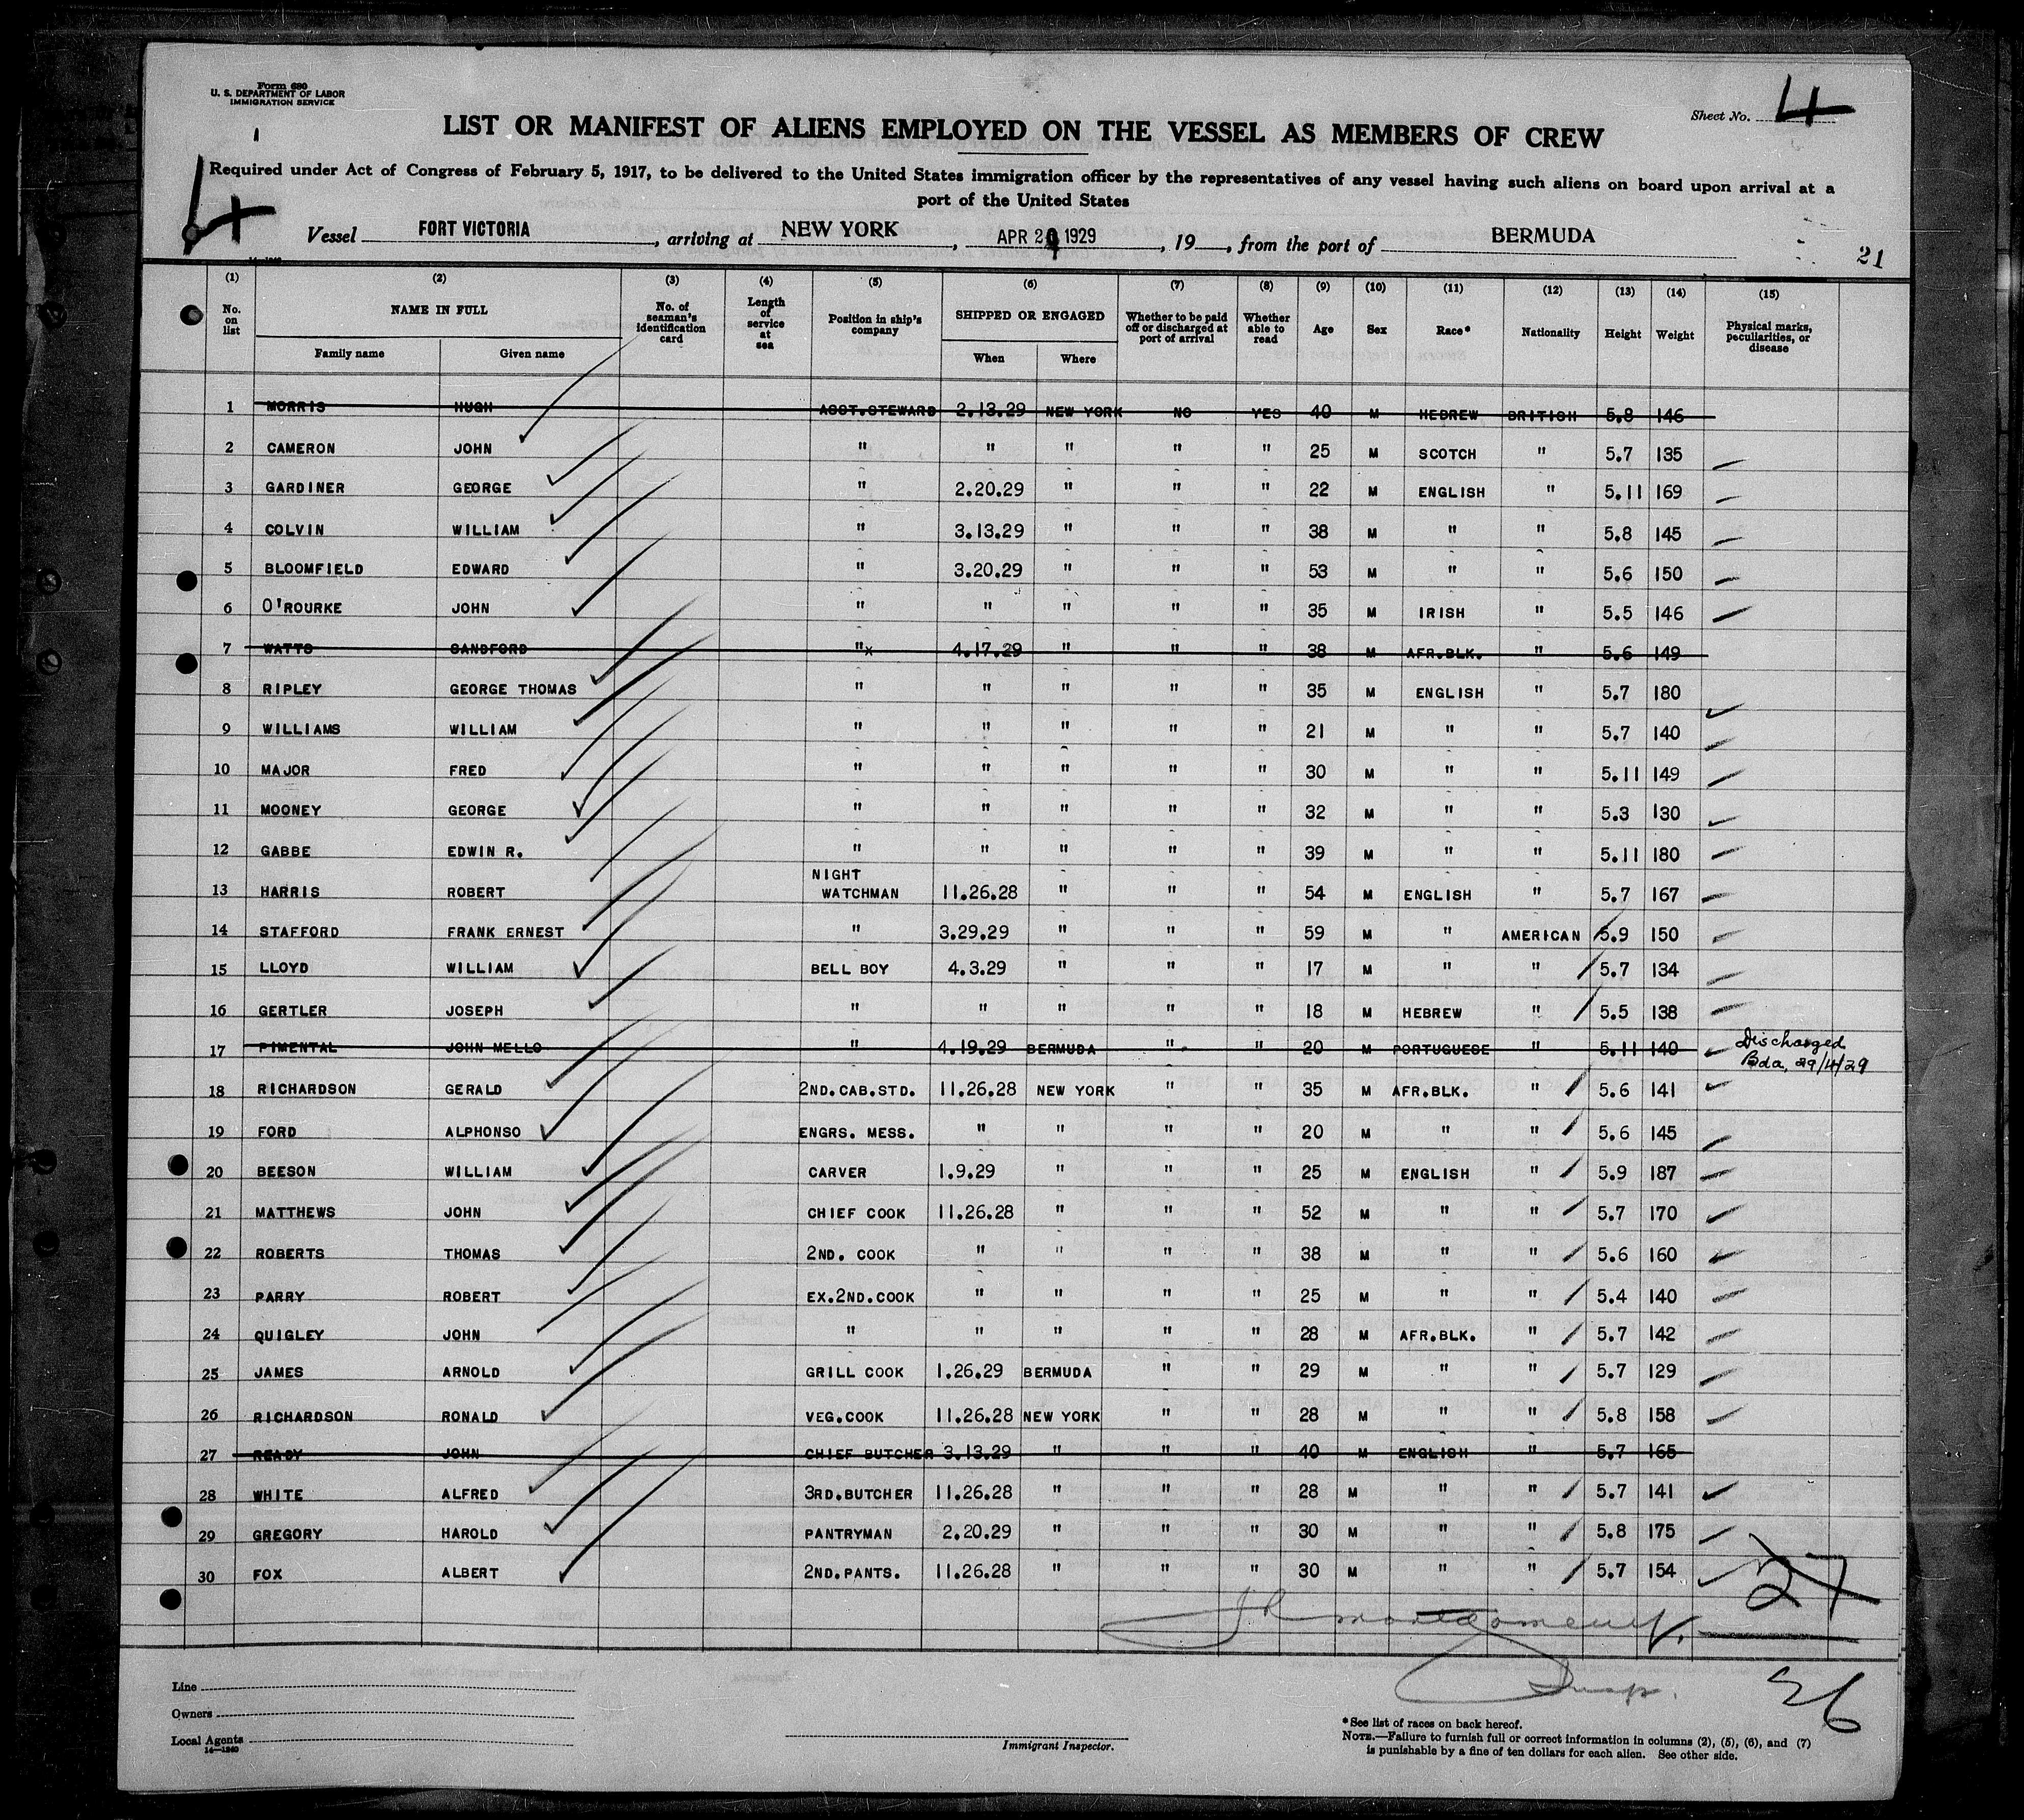 Form 680
U. S. DEPARTMENT OF LABOR
IMMIGRATION SERVICE
Sheet No. 4
LIST OR MANIFEST OF ALIENS EMPLOYED ON THE VESSEL AS MEMBERS OF CREW
Required under Act of Congress of February 5, 1917, to be delivered to the United States immigration officer by the representatives of any vessel having such aliens on board upon arrival at a
port of the United States
4
Vessel FORT VICTORIA, arriving at NEW YORK, APR 29 1929, 19, from the port of BERMUDA
21
(1) (2) (3) (4) (5) (6) (7) (8) (9) (10) (11) (12) (13) (14) (15)
No. on list NAME IN FULL Family name Given name No. of seaman's identification card Length of service at sea Position in ship's company SHIPPED OR ENGAGED When Where Whether to be paid off or discharged at port of arrival Whether able to read Age Sex Race* Nationality Height Weight Physical marks, peculiarities, or disease
1 MORRIS HUGH ASST.STEWARD 2.13.29 NEW YORK NO YES 40 M HEBREW BRITISH 5.8 146
2 CAMERON JOHN " " " " " 25 M SCOTCH " 5.7 135
3 GARDINER GEORGE " 2.20.29 " " " 22 M ENGLISH " 5.11 169
4 COLVIN WILLIAM " 3.13.29 " " " 38 M " " 5.8 145
5 BLOOMFIELD EDWARD " 3.20.29 " " " 53 M " " 5.6 150
6 O'ROURKE JOHN " " " " " 35 M IRISH " 5.5 146
7 WATTS SANDFORD "x 4.17.29 " " " 38 M AFR.BLK. " 5.6 149
8 RIPLEY GEORGE THOMAS " " " " " 35 M ENGLISH " 5.7 180
9 WILLIAMS WILLIAM " " " " " 21 M " " 5.7 140
10 MAJOR FRED " " " " " 30 M " " 5.11 149
11 MOONEY GEORGE " " " " " 32 M " " 5.3 130
12 GABBE EDWIN R. " " " " " 39 M " " 5.11 180
13 HARRIS ROBERT NIGHT WATCHMAN 11.26.28 " " " 54 M ENGLISH " 5.7 167
14 STAFFORD FRANK ERNEST " 3.29.29 " " " 59 M " AMERICAN 5.9 150
15 LLOYD WILLIAM BELL BOY 4.3.29 " " " 17 M " " 5.7 134
16 GERTLER JOSEPH " " " " " 18 M HEBREW " 5.5 138
17 PIMENTAL JOHN MELLO " 4.19.29 BERMUDA " " 20 M PORTUGUESE " 5.11 140 Discharged Bda, 29/4/29
18 RICHARDSON GERALD 2ND.CAB.STD. 11.26.28 NEW YORK " " 35 M AFR.BLK. " 5.6 141
19 FORD ALPHONSO ENGRS. MESS. " " " " 20 M " " 5.6 145
20 BEESON WILLIAM CARVER 1.9.29 " " " 25 M ENGLISH " 5.9 187
21 MATTHEWS JOHN CHIEF COOK 11.26.28 " " " 52 M " " 5.7 170
22 ROBERTS THOMAS 2ND. COOK " " " " 38 M " " 5.6 160
23 PARRY ROBERT EX.2ND.COOK " " " " 25 M " " 5.4 140
24 QUIGLEY JOHN " " " " " 28 M AFR.BLK. " 5.7 142
25 JAMES ARNOLD GRILL COOK 1.26.29 BERMUDA " " 29 M " " 5.7 129
26 RICHARDSON RONALD VEG.COOK 11.26.28 NEW YORK " " 28 M " " 5.8 158
27 READY JOHN CHIEF BUTCHER 3.13.29 " " " 40 M ENGLISH " 5.7 165
28 WHITE ALFRED 3RD.BUTCHER 11.26.28 " " " 28 M " " 5.7 141
29 GREGORY HAROLD PANTRYMAN 2.20.29 " " " 30 M " " 5.8 175
30 FOX ALBERT 2ND.PANTS. 11.26.28 " " " 30 M " " 5.7 154
27
Montgomery
Insp.
26
Line
Owners
Local Agents
14—1240
Immigrant Inspector.
*See list of races on back hereof.
NOTE.—Failure to furnish full or correct information in columns (2), (5), (6), and (7)
is punishable by a fine of ten dollars for each alien. See other side.